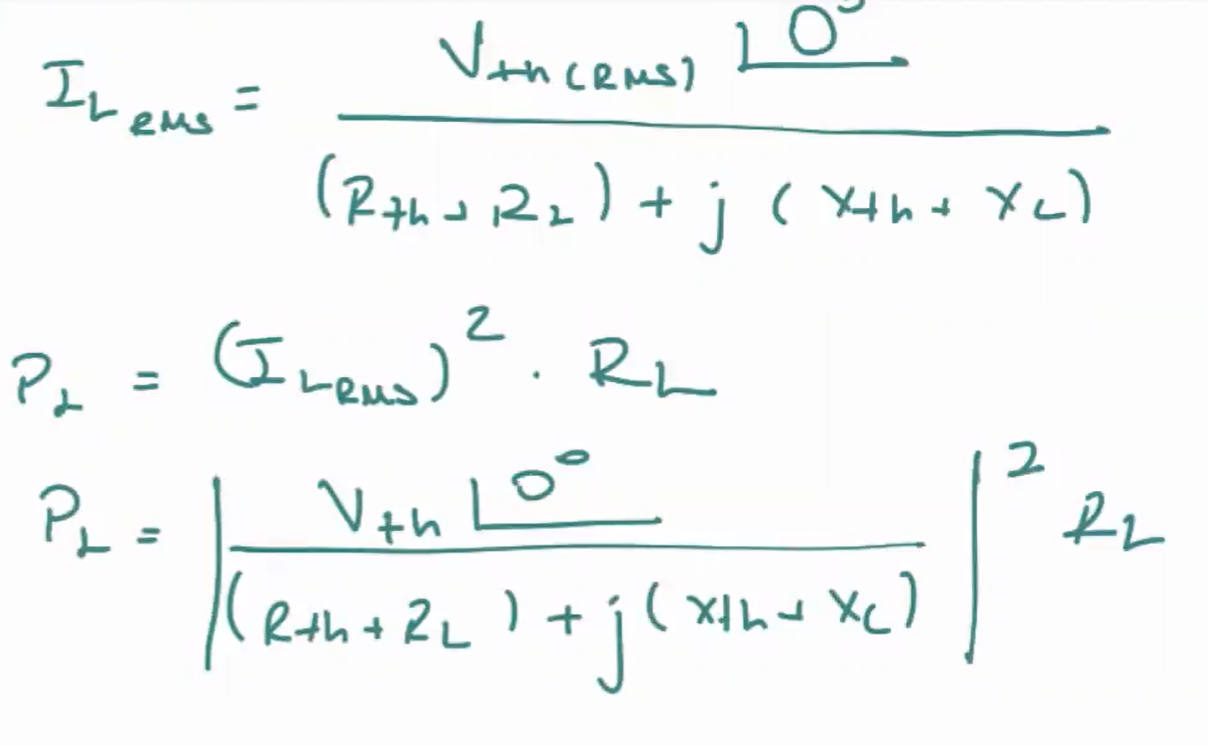 I_L RMS = V_th (RMS) ∠0° / ((R_th + R_L) + j (X_th + X_L))
P_L = (I_L RMS)² · R_L
P_L = | V_th ∠0° / ((R_th + R_L) + j (X_th + X_L)) |² R_L